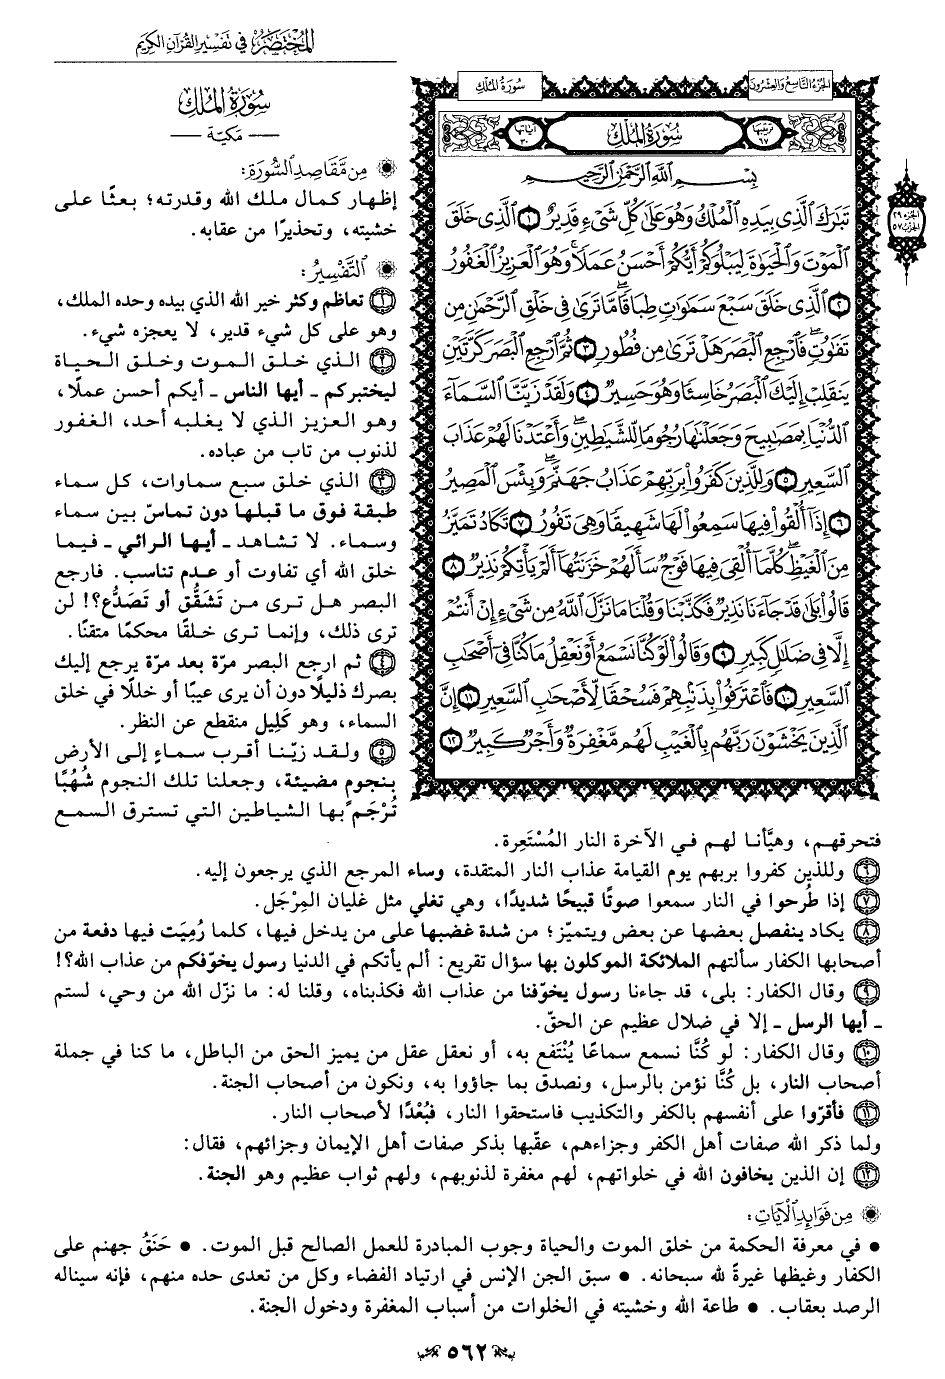 المختصر في تفسير القرآن الكريم
الجزء التاسع والعشرون
سورة الملك
ترتيبها ٦٧
سورة الملك
آياتها ٣٠
بِسْمِ اللَّهِ الرَّحْمَٰنِ الرَّحِيمِ
تَبَارَكَ الَّذِي بِيَدِهِ الْمُلْكُ وَهُوَ عَلَىٰ كُلِّ شَيْءٍ قَدِيرٌ ١ الَّذِي خَلَقَ
الْمَوْتَ وَالْحَيَوٰةَ لِيَبْلُوَكُمْ أَيُّكُمْ أَحْسَنُ عَمَلًا ۚ وَهُوَ الْعَزِيزُ الْغَفُورُ
٢ الَّذِي خَلَقَ سَبْعَ سَمَٰوَٰتٍ طِبَاقًا ۖ مَّا تَرَىٰ فِي خَلْقِ الرَّحْمَٰنِ مِن
تَفَٰوُتٍ ۖ فَارْجِعِ الْبَصَرَ هَلْ تَرَىٰ مِن فُطُورٍ ٣ ثُمَّ ارْجِعِ الْبَصَرَ كَرَّتَيْنِ
يَنقَلِبْ إِلَيْكَ الْبَصَرُ خَاسِئًا وَهُوَ حَسِيرٌ ٤ وَلَقَدْ زَيَّنَّا السَّمَاءَ
الدُّنْيَا بِمَصَٰبِيحَ وَجَعَلْنَٰهَا رُجُومًا لِّلشَّيَٰطِينِ ۖ وَأَعْتَدْنَا لَهُمْ عَذَابَ
السَّعِيرِ ٥ وَلِلَّذِينَ كَفَرُوا بِرَبِّهِمْ عَذَابُ جَهَنَّمَ ۖ وَبِئْسَ الْمَصِيرُ
٦ إِذَا أُلْقُوا فِيهَا سَمِعُوا لَهَا شَهِيقًا وَهِيَ تَفُورُ ٧ تَكَادُ تَمَيَّزُ
مِنَ الْغَيْظِ ۖ كُلَّمَا أُلْقِيَ فِيهَا فَوْجٌ سَأَلَهُمْ خَزَنَتُهَا أَلَمْ يَأْتِكُمْ نَذِيرٌ ٨
قَالُوا بَلَىٰ قَدْ جَاءَنَا نَذِيرٌ فَكَذَّبْنَا وَقُلْنَا مَا نَزَّلَ اللَّهُ مِن شَيْءٍ إِنْ أَنتُمْ
إِلَّا فِي ضَلَٰلٍ كَبِيرٍ ٩ وَقَالُوا لَوْ كُنَّا نَسْمَعُ أَوْ نَعْقِلُ مَا كُنَّا فِي أَصْحَٰبِ
السَّعِيرِ ١٠ فَاعْتَرَفُوا بِذَنبِهِمْ فَسُحْقًا لِّأَصْحَٰبِ السَّعِيرِ ١١ إِنَّ
الَّذِينَ يَخْشَوْنَ رَبَّهُم بِالْغَيْبِ لَهُم مَّغْفِرَةٌ وَأَجْرٌ كَبِيرٌ ١٢
الجزء ٢٩
الحزب ٥٧
سورة الملك
— مكية —
من مقاصد السورة:
إظهار كمال ملك الله وقدرته؛ بعثًا على
خشيته، وتحذيرًا من عقابه.
التفسير:
١ تعاظم وكثر خير الله الذي بيده وحده الملك،
وهو على كل شيء قدير، لا يعجزه شيء.
٢ الذي خلق الموت وخلق الحياة
ليختبركم ـ أيها الناس ـ أيكم أحسن عملًا،
وهو العزيز الذي لا يغلبه أحد، الغفور
لذنوب من تاب من عباده.
٣ الذي خلق سبع سماوات، كل سماء
طبقة فوق ما قبلها دون تماسّ بين سماء
وسماء. لا تشاهد ـ أيها الرائي ـ فيما
خلق الله أي تفاوت أو عدم تناسب. فارجع
البصر هل ترى من تَشَقُّق أو تَصَدُّع؟! لن
ترى ذلك، وإنما ترى خلقًا محكمًا متقنًا.
٤ ثم ارجع البصر مرّة بعد مرّة يرجع إليك
بصرك ذليلًا دون أن يرى عيبًا أو خللًا في خلق
السماء، وهو كَلِيل منقطع عن النظر.
٥ ولقد زيّنا أقرب سماءٍ إلى الأرض
بنجوم مضيئة، وجعلنا تلك النجوم شُهُبًا
تُرْجَم بها الشياطين التي تسترق السمع
فتحرقهم، وهيَّأنا لهم في الآخرة النار المُسْتَعِرة.
٦ وللذين كفروا بربهم يوم القيامة عذاب النار المتقدة، وساء المرجع الذي يرجعون إليه.
٧ إذا طُرحوا في النار سمعوا صوتًا قبيحًا شديدًا، وهي تغلي مثل غليان المِرْجَل.
٨ يكاد ينفصل بعضها عن بعض ويتميّز؛ من شدة غضبها على من يدخل فيها، كلما رُمِيَت فيها دفعة من
أصحابها الكفار سألتهم الملائكة الموكلون بها سؤال تقريع: ألم يأتكم في الدنيا رسول يخوّفكم من عذاب الله؟!
٩ وقال الكفار: بلى، قد جاءنا رسول يخوّفنا من عذاب الله فكذبناه، وقلنا له: ما نزّل الله من وحي، لستم
ـ أيها الرسل ـ إلا في ضلال عظيم عن الحقّ.
١٠ وقال الكفار: لو كُنَّا نسمع سماعًا يُنْتَفع به، أو نعقل عقل من يميز الحق من الباطل، ما كنا في جملة
أصحاب النار، بل كُنَّا نؤمن بالرسل، ونصدق بما جاؤوا به، ونكون من أصحاب الجنة.
١١ فأقرّوا على أنفسهم بالكفر والتكذيب فاستحقوا النار، فبُعْدًا لأصحاب النار.
ولما ذكر الله صفات أهل الكفر وجزاءهم، عقّبها بذكر صفات أهل الإيمان وجزائهم، فقال:
١٢ إن الذين يخافون الله في خلواتهم، لهم مغفرة لذنوبهم، ولهم ثواب عظيم وهو الجنة.
من فوائد الآيات:
• في معرفة الحكمة من خلق الموت والحياة وجوب المبادرة للعمل الصالح قبل الموت. • حَنَقُ جهنم على
الكفار وغيظها غيرةً لله سبحانه. • سبق الجن الإنس في ارتياد الفضاء وكل من تعدى حده منهم، فإنه سيناله
الرصد بعقاب. • طاعة الله وخشيته في الخلوات من أسباب المغفرة ودخول الجنة.
٥٦٢